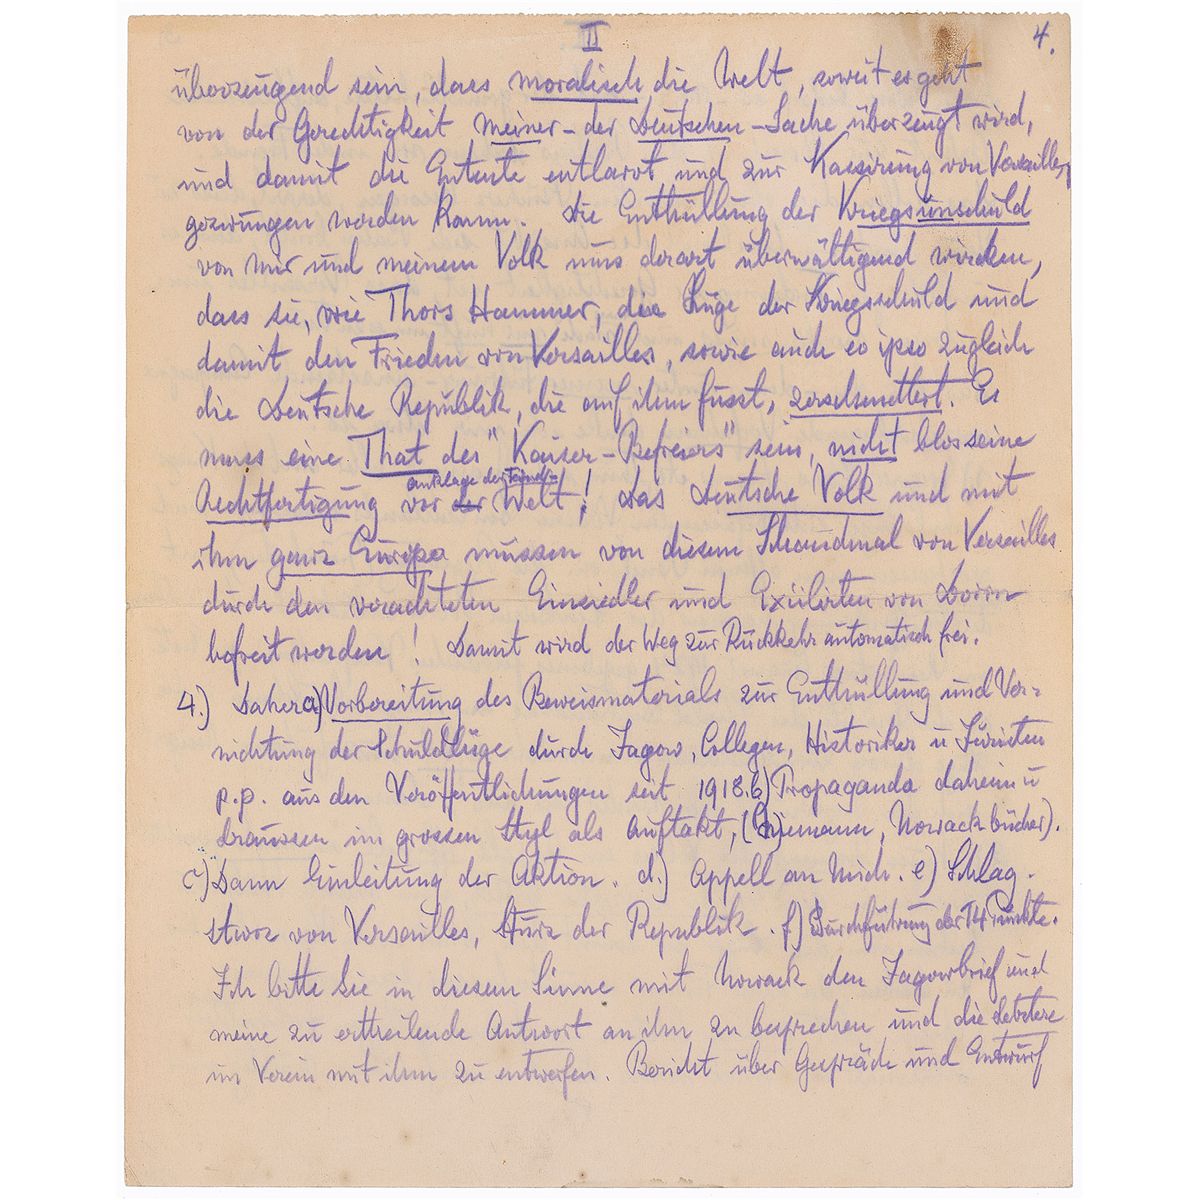 II
4.
überzeugend sein, dass moralisch die Welt, soweit es geht
von der Gerechtigkeit meiner – der Deutschen – Sache überzeugt wird,
und damit die Entente entlarvt und zur Kassirung von Versailles,
gezwungen werden kann. Die Enthüllung der Kriegsunschuld
von mir und meinem Volk muss derart überwältigend wirken,
dass sie, wie Thors Hammer, die Lüge der Kriegsschuld und
damit den Frieden von Versailles, sowie auch eo ipso zugleich
die Deutsche Republik, die auf ihm fusst, zerschmettert. Es
muss eine That des "Kaiser-Befreiers" sein, nicht blos seine
anklage der Feind=
Rechtfertigung vor der Welt! Das Deutsche Volk und mit
ihm ganz Europa müssen von diesem Schandmal von Versailles
durch den verachteten Einsiedler und Exilirten von Doorn
befreit werden! Damit wird der Weg zur Rückkehr automatisch frei.
4.) Daher a) Vorbereitung des Beweismaterials zur Enthüllung und Ver=
nichtung der Schuldlüge durch Jagow, Collegen, Historiker u Juristen
p.p. aus den Veröffentlichungen seit 1918. b) Propaganda daheim u
draussen im grossen Styl als Auftakt, (Niemann, Nowack bücher).
c) Dann Einleitung der Aktion. d.) Appell an Mich. e) Schlag.
Sturz von Versailles, Sturz der Republik. f) Durchführung der 14 Punkte.
Ich bitte Sie in diesem Sinne mit Nowack den Jagowbrief und
meine zu ertheilende Antwort an ihm zu besprechen und die Letztere
im Verein mit ihm zu entwerfen. Bericht über Gespräch und Entwurf